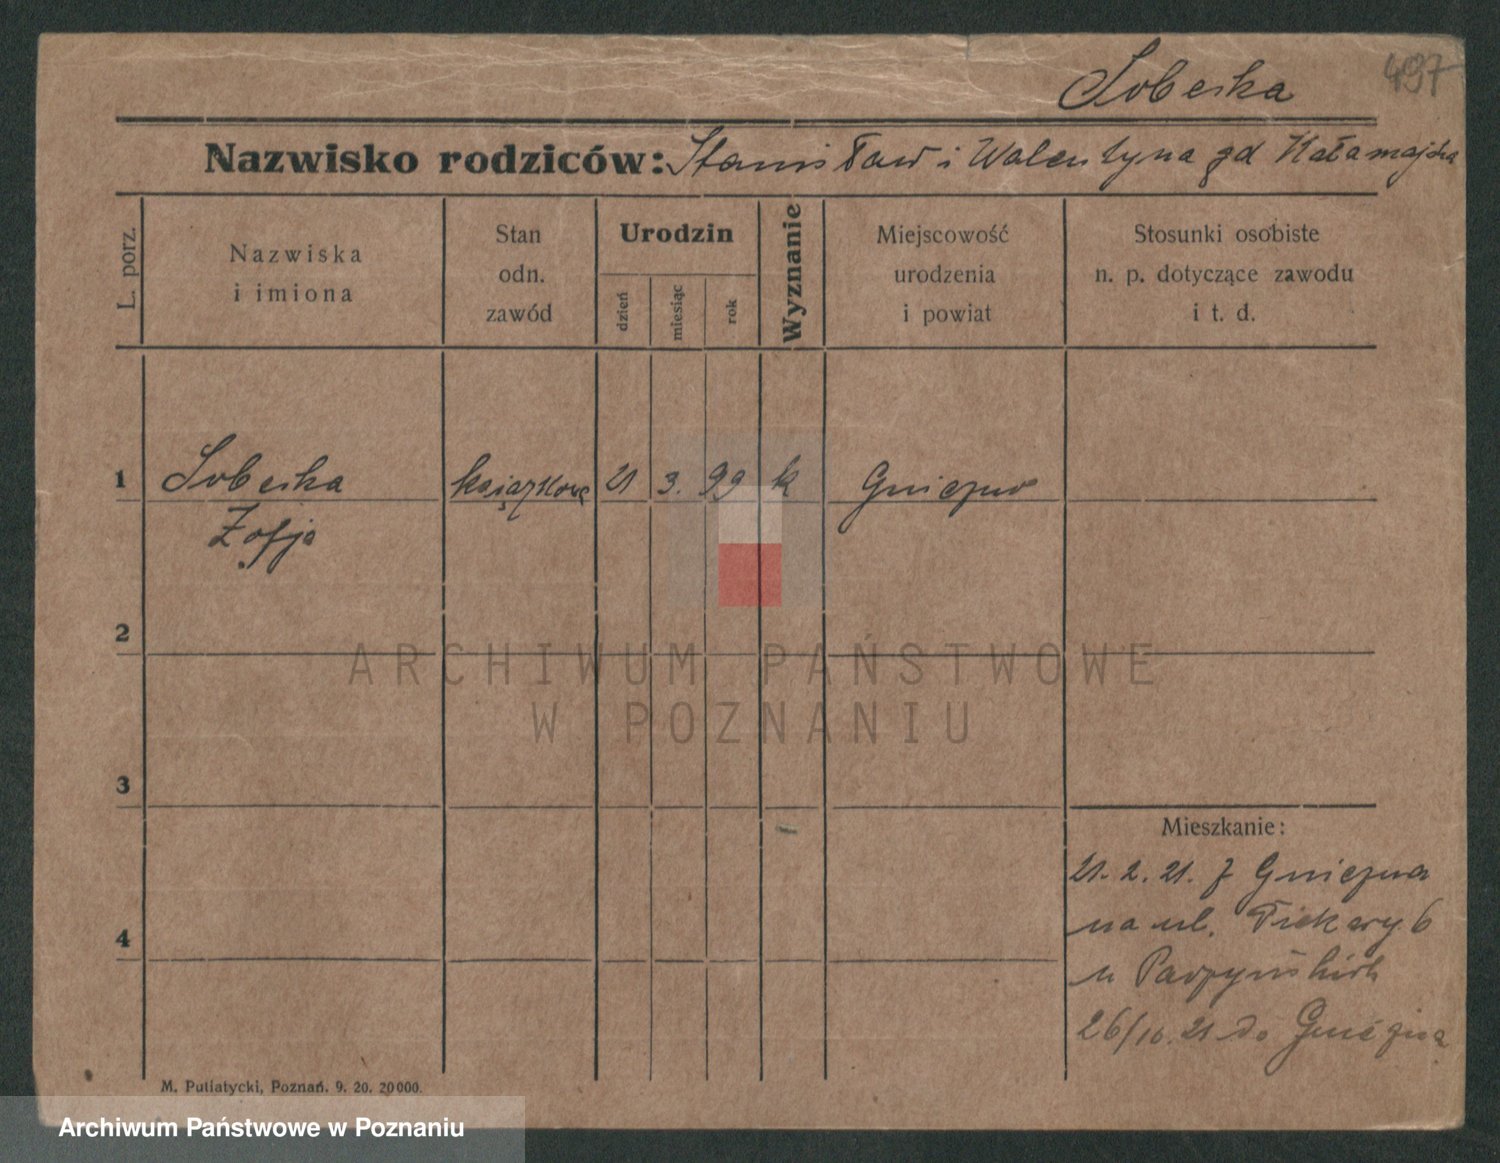 497
Sobeska
Nazwisko rodziców: Stanisław i Walentyna gd Kałamajska
L. porz.
Nazwiska
i imiona
Stan
odn.
zawód
Urodzin
dzień
miesiąc
rok
Wyznanie
Miejscowość
urodzenia
i powiat
Stosunki osobiste
n. p. dotyczące zawodu
i t. d.
1 Sobeska książkowa 21 3. 99 k Gniezno
Zofja
2
ARCHIWUM PAŃSTWOWE
W POZNANIU
3
Mieszkanie:
21. 2. 21. z Gniezna
na ul. Piekary 6
u
4
26/10.21 do Gniezna
M. Putiatycki, Poznań. 9. 20. 20000.
Archiwum Państwowe w Poznaniu